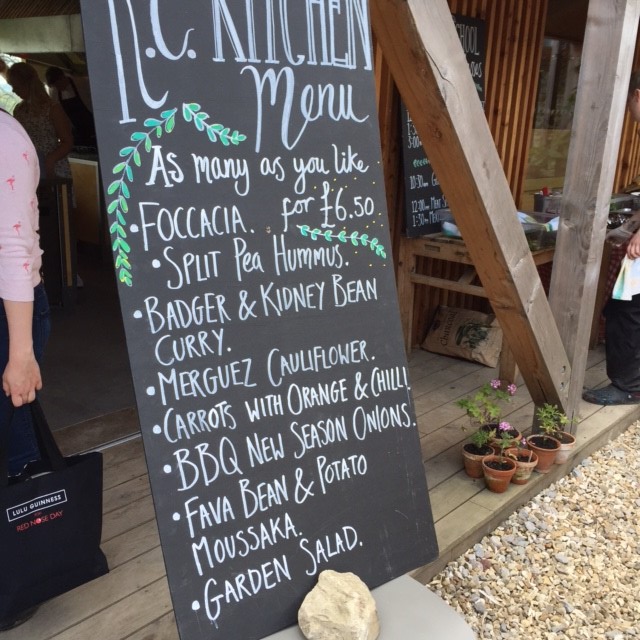 R.C. KITCHEN
Menu
As many as you like
for £6.50
• FOCCACIA.
• SPLIT Pea HUMMUS.
• BADGER & KIDNEY BEAN
CURRY.
• MERGUEZ CAULIFLOWER.
• CARROTS WITH ORANGE & CHILLI.
• BBQ NEW SEASON ONIONS.
• FAVA BEAN & POTATO
MOUSSAKA.
• GARDEN SALAD.
LULU GUINNESS
RED NOSE DAY
10:30am
12:00
1:30